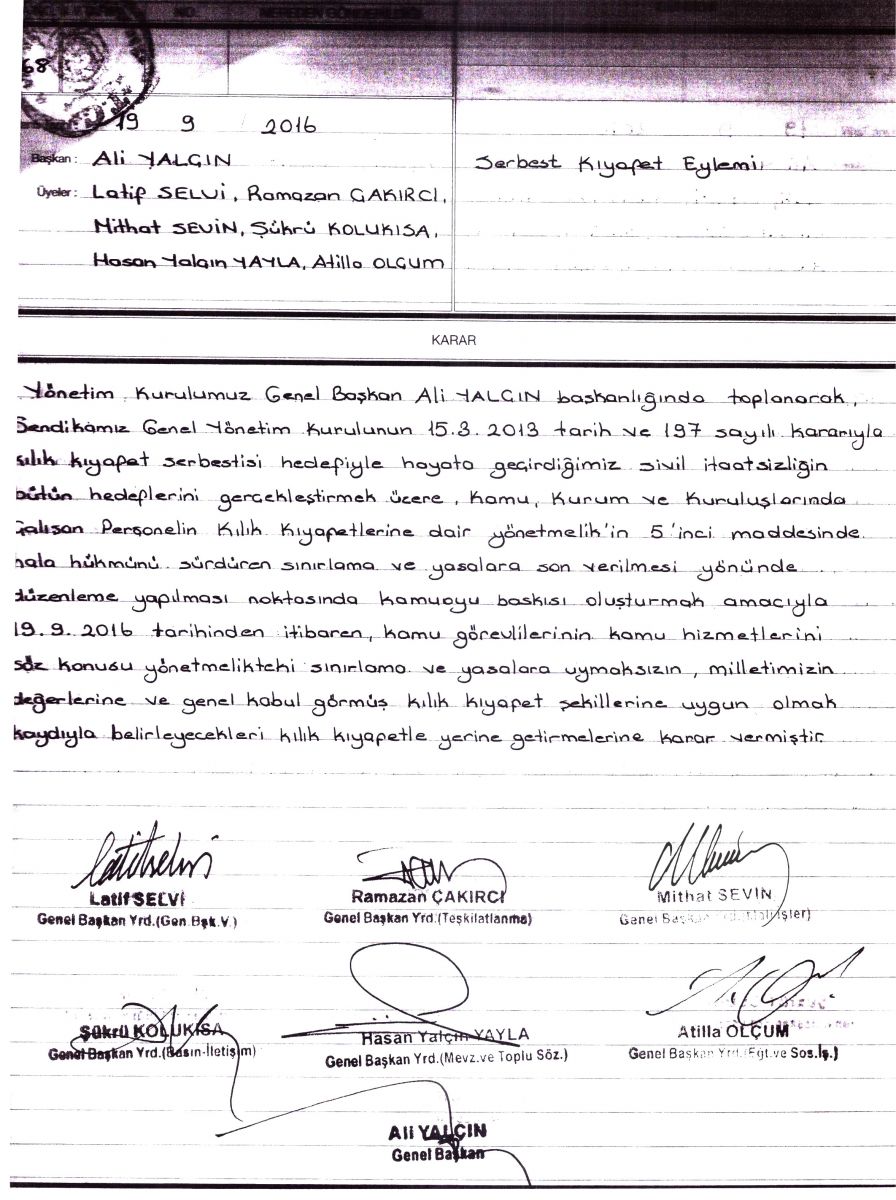 68
19 9 2016
Başkan: Ali YALÇIN
Serbest Kıyafet Eylemi
Üyeler: Latif SELVİ, Ramazan ÇAKIRCI,
Mithat SEVİN, Şükrü KOLUKISA,
Hasan Yalçın YAYLA, Atilla OLÇUM
KARAR
Yönetim Kurulumuz Genel Başkan Ali YALÇIN başkanlığında toplanarak,
Sendikamız Genel Yönetim Kurulunun 15.3.2013 tarih ve 197 sayılı kararıyla
kılık kıyafet serbestisi hedefiyle hayata geçirdiğimiz sivil itaatsizliğin
bütün hedeflerini gerçekleştirmek üzere, Kamu, Kurum ve Kuruluşlarında
Çalışan Personelin Kılık Kıyafetlerine dair yönetmelik'in 5'inci maddesinde
hala hükmünü sürdüren sınırlama ve yasalara son verilmesi yönünde
düzenleme yapılması noktasında kamuoyu baskısı oluşturmak amacıyla
19.9.2016 tarihinden itibaren, kamu görevlilerinin kamu hizmetlerini
söz konusu yönetmelikteki sınırlama ve yasalara uymaksızın, milletimizin
değerlerine ve genel kabul görmüş kılık kıyafet şekillerine uygun olmak
kaydıyla belirleyecekleri kılık kıyafetle yerine getirmelerine karar vermiştir.
Latif SELVİ
Genel Başkan Yrd.(Gen.Bşk.V.)
Ramazan ÇAKIRCI
Genel Başkan Yrd.(Teşkilatlanma)
Mithat SEVİN
Genel Başkan Yrd.(Mali İşler)
Şükrü KOLUKISA
Genel Başkan Yrd.(Basın-İletişim)
Hasan Yalçın YAYLA
Genel Başkan Yrd.(Mevz.ve Toplu Söz.)
Atilla OLÇUM
Genel Başkan Yrd.(Eğt.ve Sos.İş.)
Ali YALÇIN
Genel Başkan